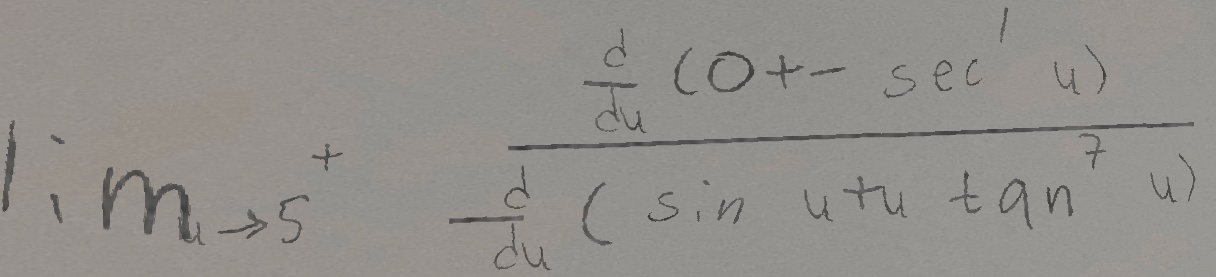 \lim_{u \to 5^+} \frac{\frac{d}{du}(0 + - \sec^1 u)}{\frac{d}{du}(\sin u + u \tan^7 u)}